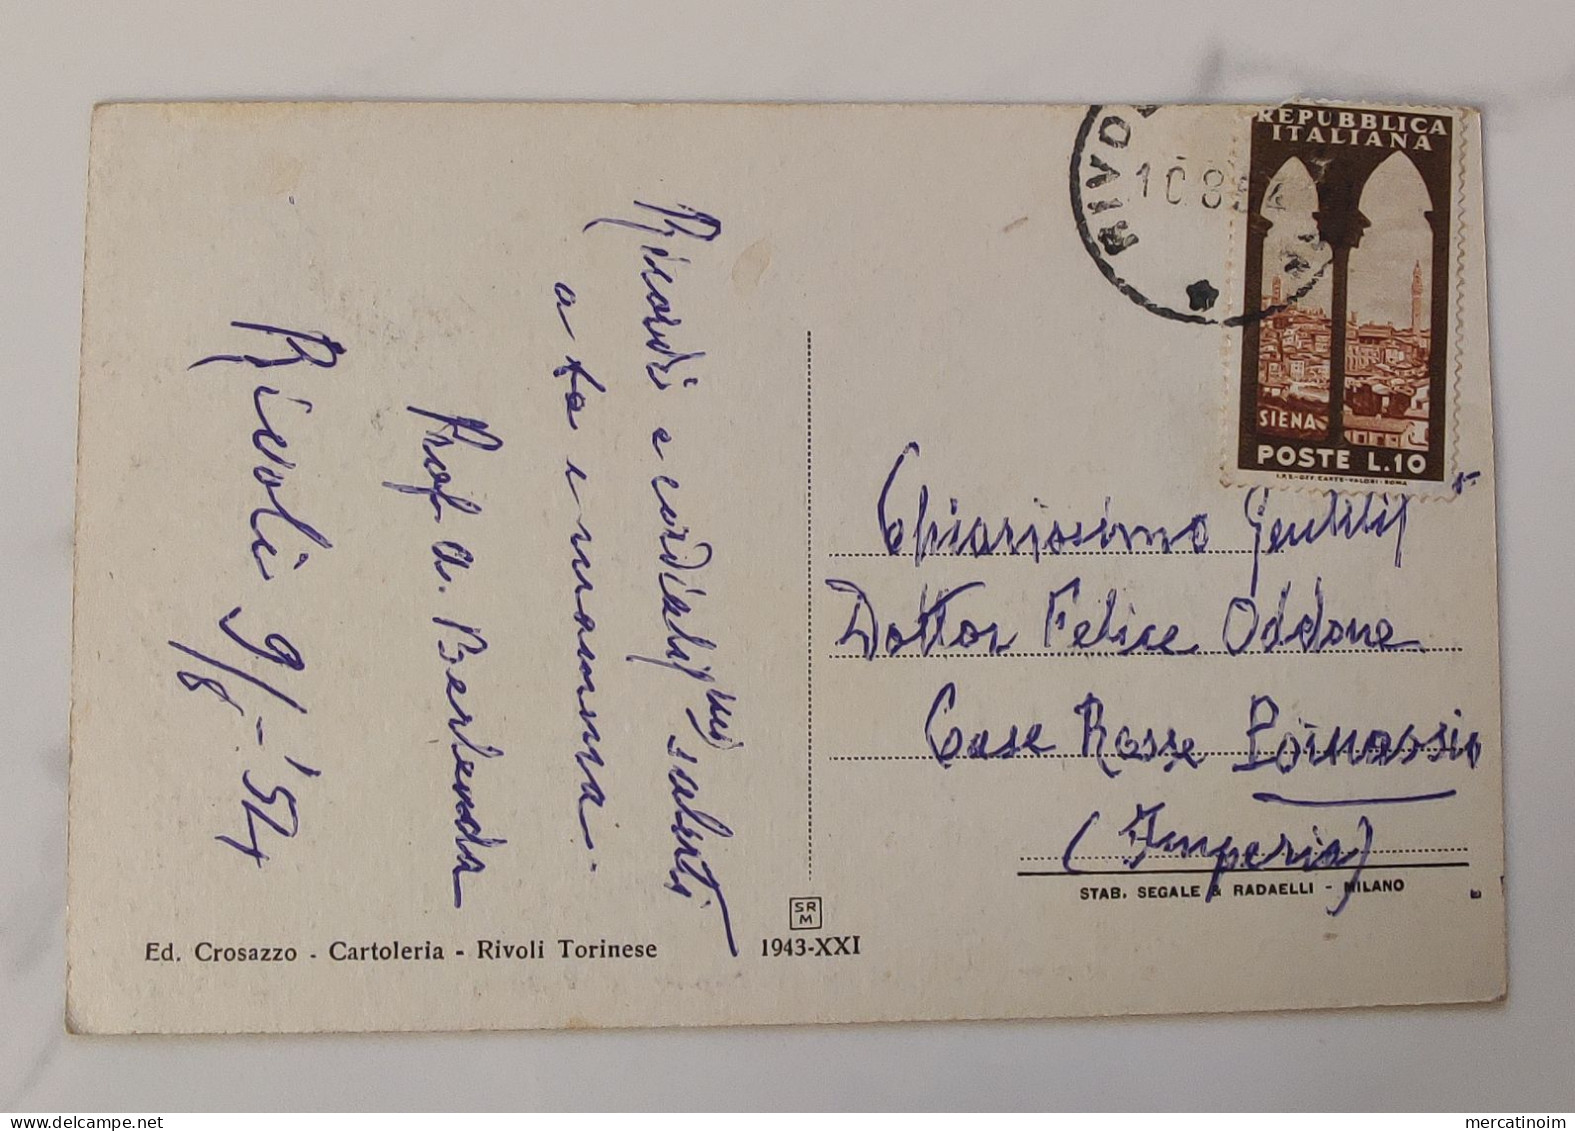 Ricordi e cordialissimi saluti
a te e mamma.
Prof. a. Bertenda
Rivoli 9/8-'54
RIVOL
10 8 54
REPUBBLICA
ITALIANA
SIENA
POSTE L.10
I.P.S.-OFF. CARTE-VALORI-ROMA
Chiarissimo Gentil
Dottor Felice Oddone
Case Rosse Pornassio
(Imperia)
STAB. SEGALE & RADAELLI - MILANO
SR
M
1943-XXI
Ed. Crosazzo - Cartoleria - Rivoli Torinese
mercatinoim